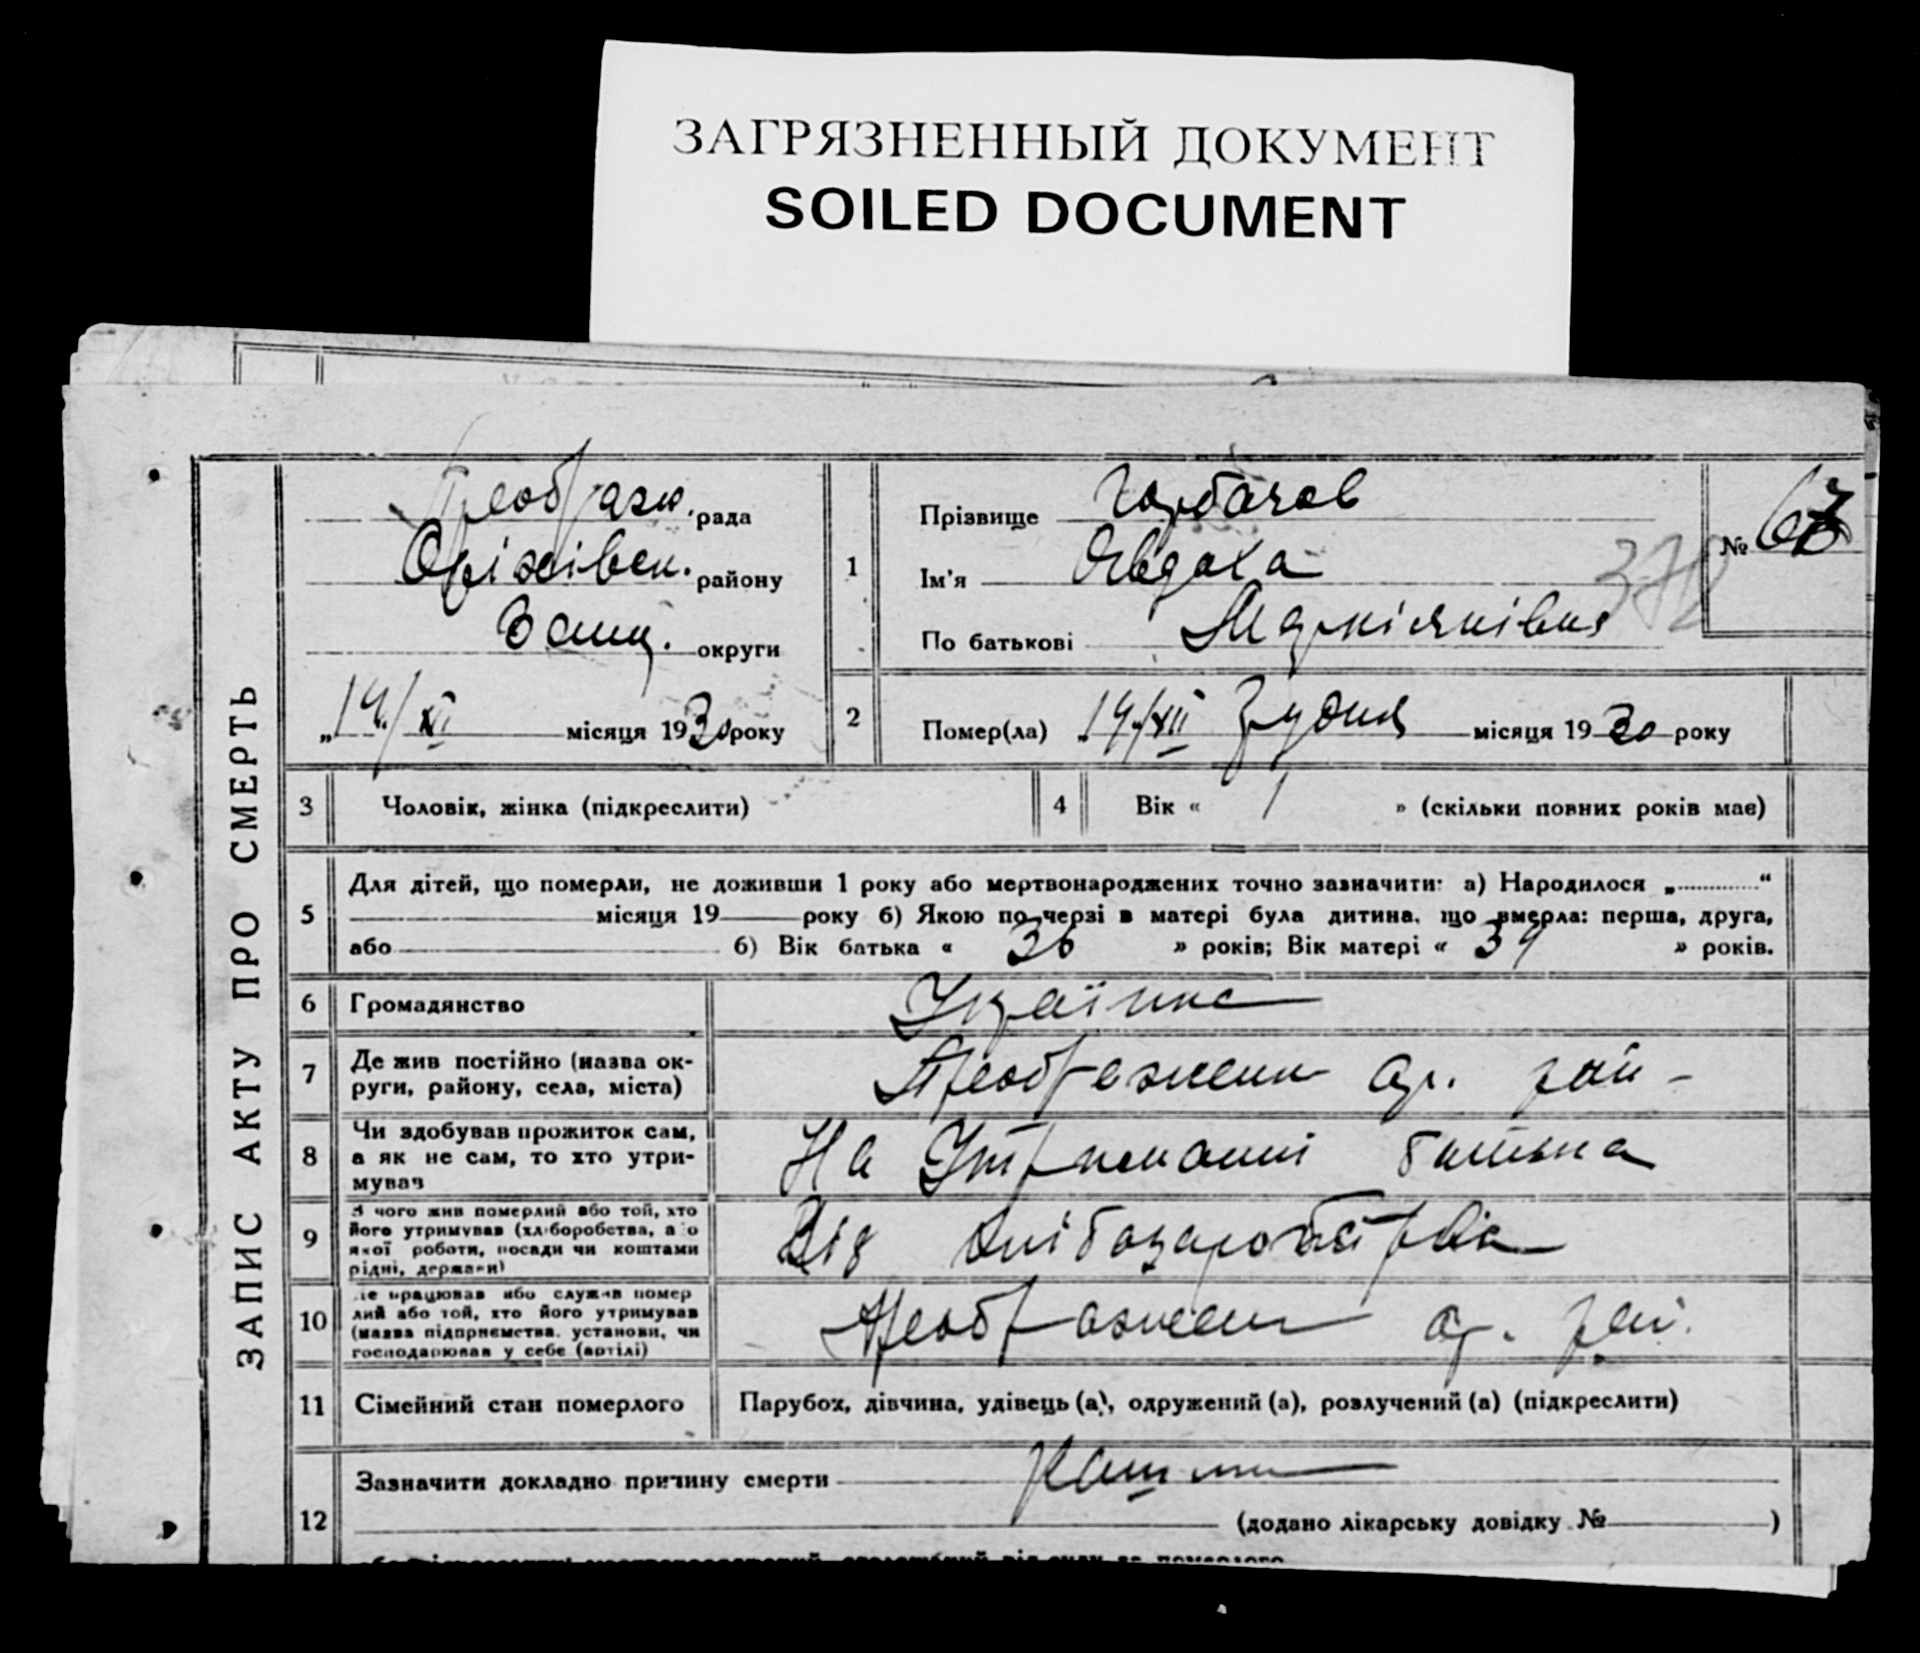 ЗАГРЯЗНЕННЫЙ ДОКУМЕНТ
SOILED DOCUMENT
ЗАПИС АКТУ ПРО СМЕРТЬ
Преображ. рада
Оріхівськ. району
Запц. округи
„14/XII місяця 1930 року
1
Прізвище Горбачов
Ім'я Явдоха
По батькові
№ 67
372
2
Помер(ла) „14/XII грудня місяця 1930 року
3 Чоловік, жінка (підкреслити)
4 Вік « 1 » (скільки повних років має)
5 Для дітей, що померли, не доживши 1 року або мертвонароджених точно зазначити: а) Народилося „ “
місяця 19 року б) Якою по черзі в матері була дитина, що вмерла: перша, друга,
або б) Вік батька « 36 » років; Вік матері « 34 » років.
6 Громадянство Українка
7 Де жив постійно (назва ок-
руги, району, села, міста) Преображенк ор. рай-
8 Чи здобував прожиток сам,
а як не сам, то хто утри-
мував На Утриманні батька
9 З чого жив померлий або той, хто
його утримував (хліборобства, а о
якої роботи, посади чи коштами
рідні, держави) Від
10 Де працював або служив помер
лий або той, хто його утримував
(назва підприємства, установи, чи
господарював у себе (артілі) Преображенк ор. рай.
11 Сімейний стан померлого Парубок, дівчина, удівець (а), одружений (а), розлучений (а) (підкреслити)
12 Зазначити докладно причину смерти
(додано лікарську довідку № )